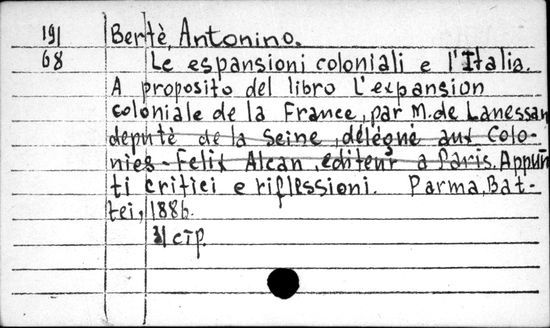 191 Bertè, Antonino.
68 Le espansioni coloniali e l'Italia.
A proposito del libro L'expansion
coloniale de la France, par M. de Lanessan
deputè de la Seine, délégné aux Colo-
nies - Felix Alcan, editeur a Paris. Appun
ti critici e riflessioni. Parma, Bat-
tei, 1886.
31 стр.